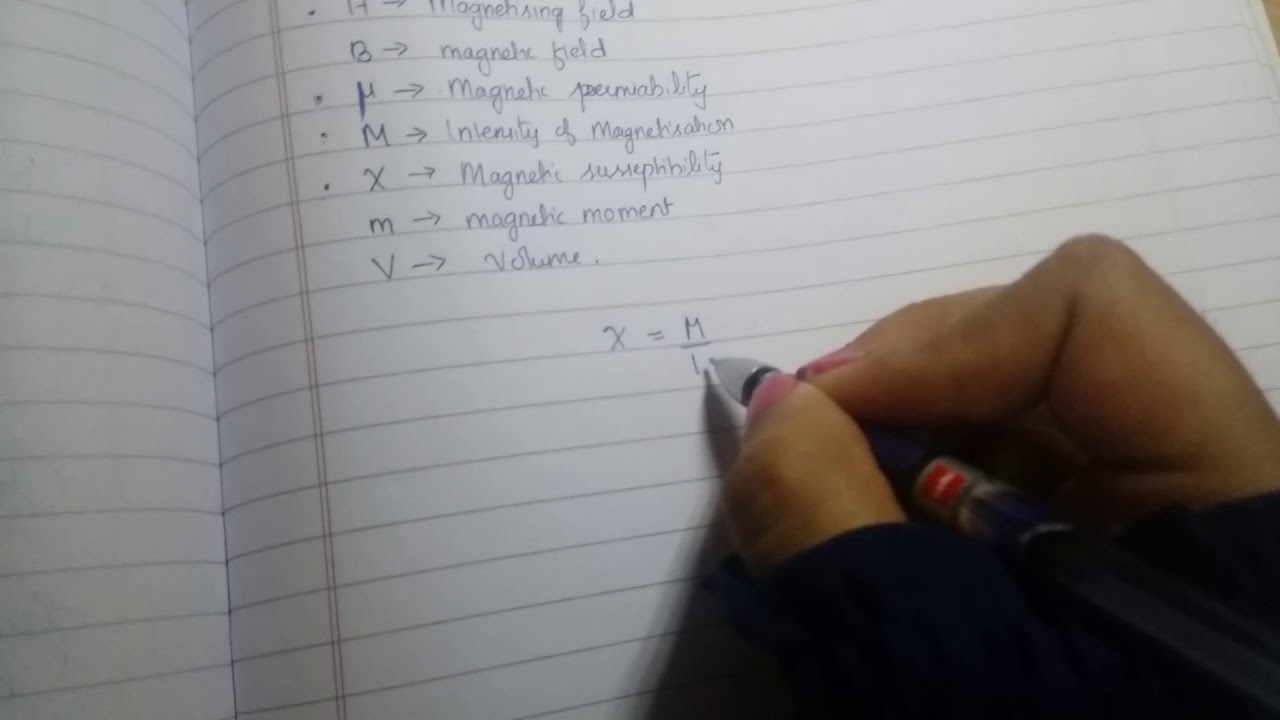 . H → Magnetising field
B → magnetic field
. μ → Magnetic permiability
. M → Intensity of Magnetisation
. χ → Magnetic sussephibility
m → magnetic moment
V → Volume.
χ = M